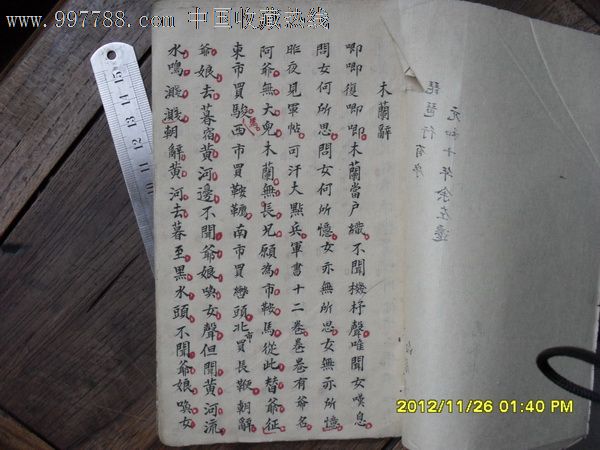 www.997788.com 中国收藏热线
木蘭辭
唧唧復唧唧木蘭當户織不聞機杼聲唯聞女嘆息
問女何所思問女何所憶女亦無所思女無亦所憶
昨夜見軍帖可汗大點兵軍書十二卷卷卷有爺名
阿爺無大兒木蘭無長兄願為市鞍馬從此替爺征
東市買駿馬西市買鞍韉南市買轡頭北市買長鞭朝辭
爺娘去暮宿黃河邊不聞爺娘喚女聲但聞黃河流
水鳴濺濺朝辭黃河去暮至黑水頭不聞爺娘喚女
琵琶行有序
元和十年余左遷
2012/11/26 01:40 PM